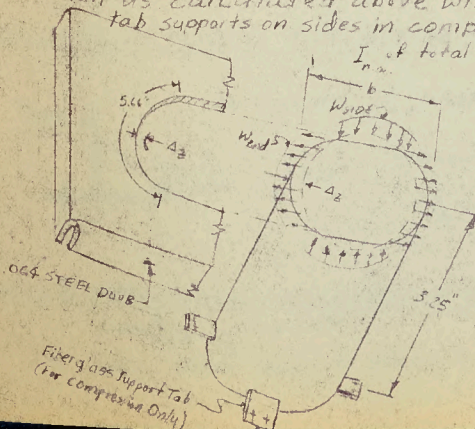 as calculated above wi
tab supports on sides in comp
I of total
b
5.66"
Wside
Wend
Δz
Δz
.064 STEEL DOOR
3.25"
Fiberglass Support Tab
(for compression Only)